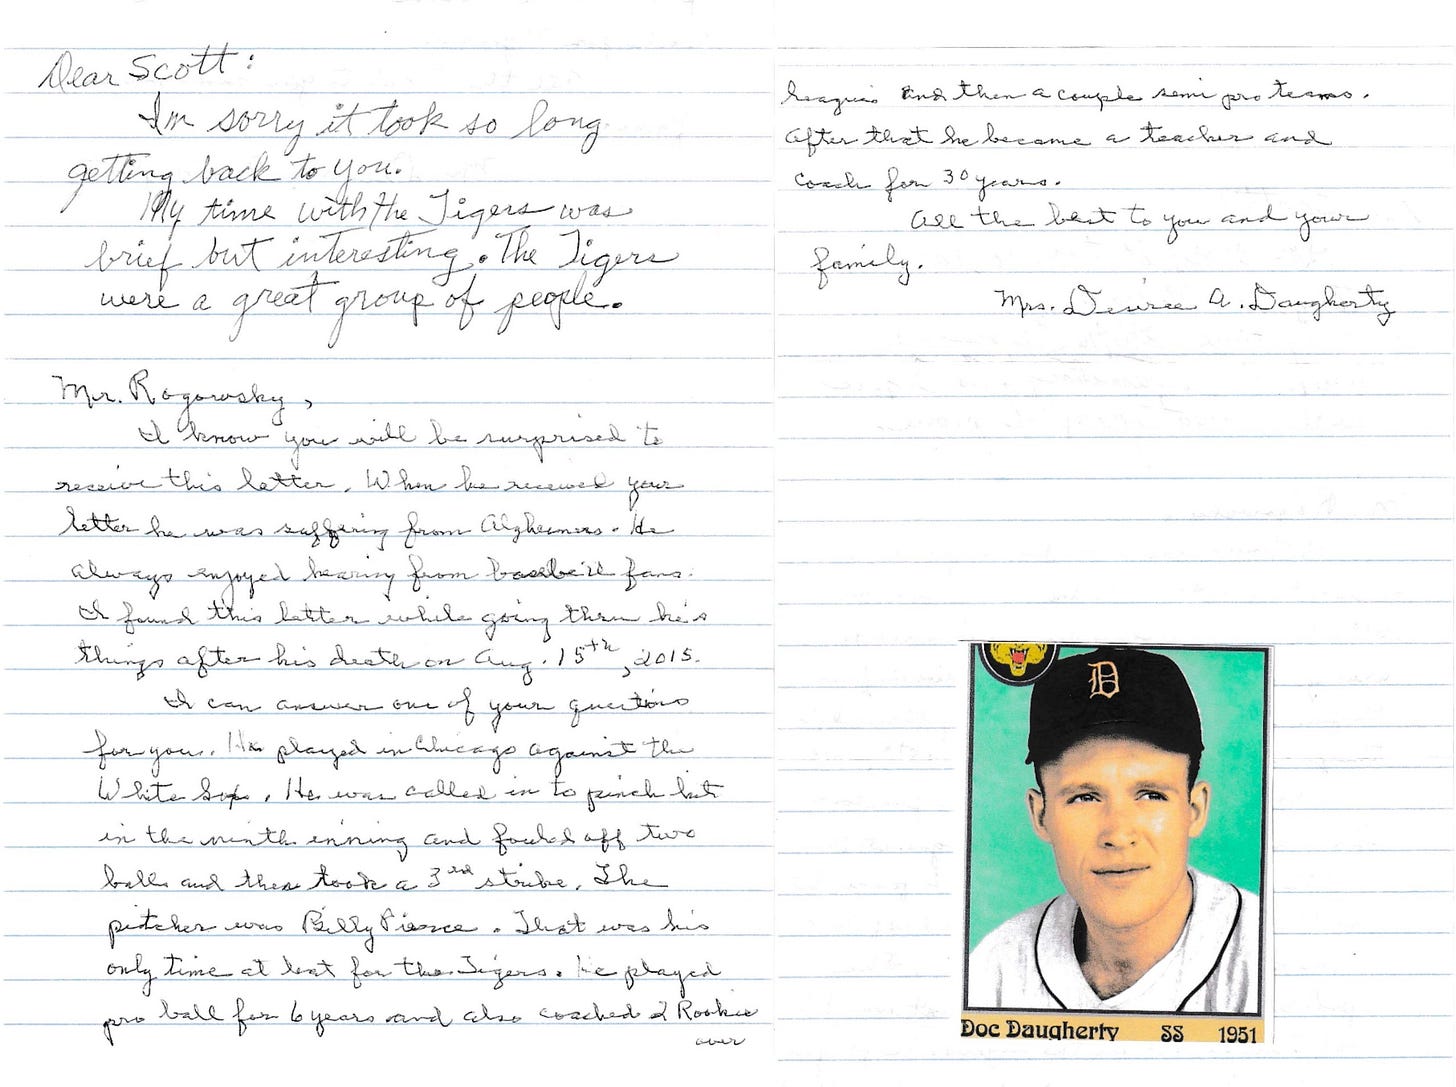 Dear Scott:
Im sorry it took so long
getting back to you.
My time with the Tigers was
brief but interesting. The Tigers
were a great group of people.
Mr. Rogowsky,
I know you will be surprised to
receive this letter. When he received your
letter he was suffering from Alzheimers. He
always enjoyed hearing from baseball fans.
I found this letter while going thru he's
things after his death on Aug. 15th, 2015.
I can answer one of your questions
for you. He played in Chicago against the
White Sox. He was called in to pinch hit
in the ninth inning and fouled off two
balls and then took a 3rd strike. The
pitcher was Billy Pierce. That was his
only time at bat for the Tigers. He played
pro ball for 6 years and also coached 2 Rookie
over
leagues and then a couple semi pro teams.
After that he became a teacher and
coach for 30 years.
All the best to you and your
family.
Mrs. A. Daugherty
D
Doc Daugherty SS 1951